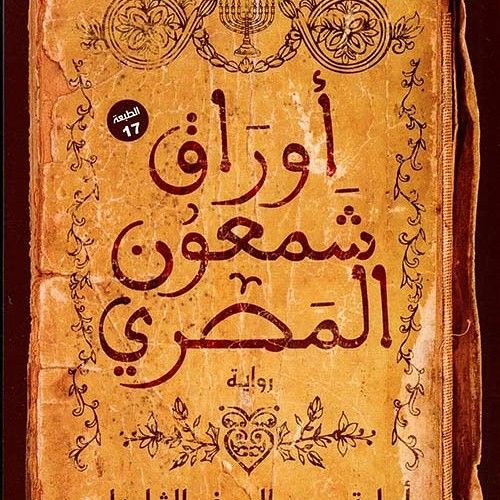 الطبعة
17
أورَاق
شَمعُون
المَصري
رواية